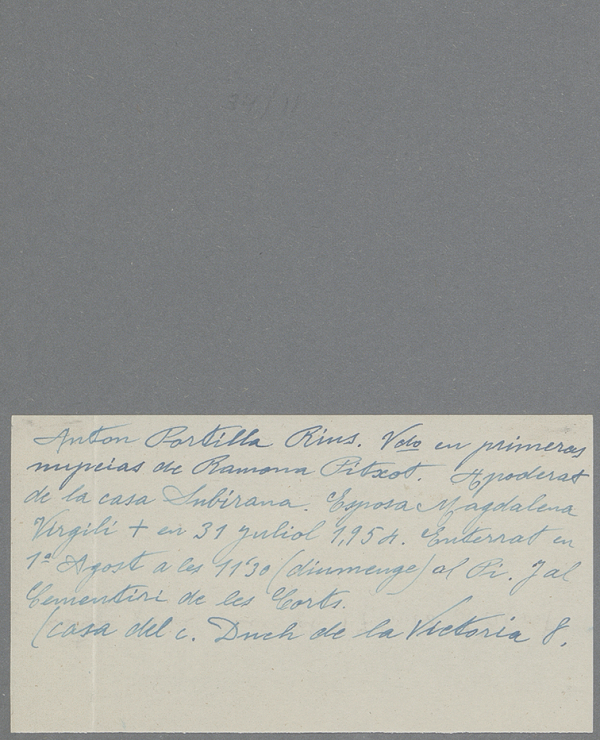 34/11
Anton Portilla Rius. Vdo en primeras
nupcias de Ramona Pitxot. Apoderat
de la casa Subirana. Esposa Magdalena
Virgili + en 31 juliol 1,954. Enterrat en
1º Agost a les 11'30 (diumenge) al Pi. J al
Cementiri de les Corts.
(casa del c. Duch de la Victoria 8.